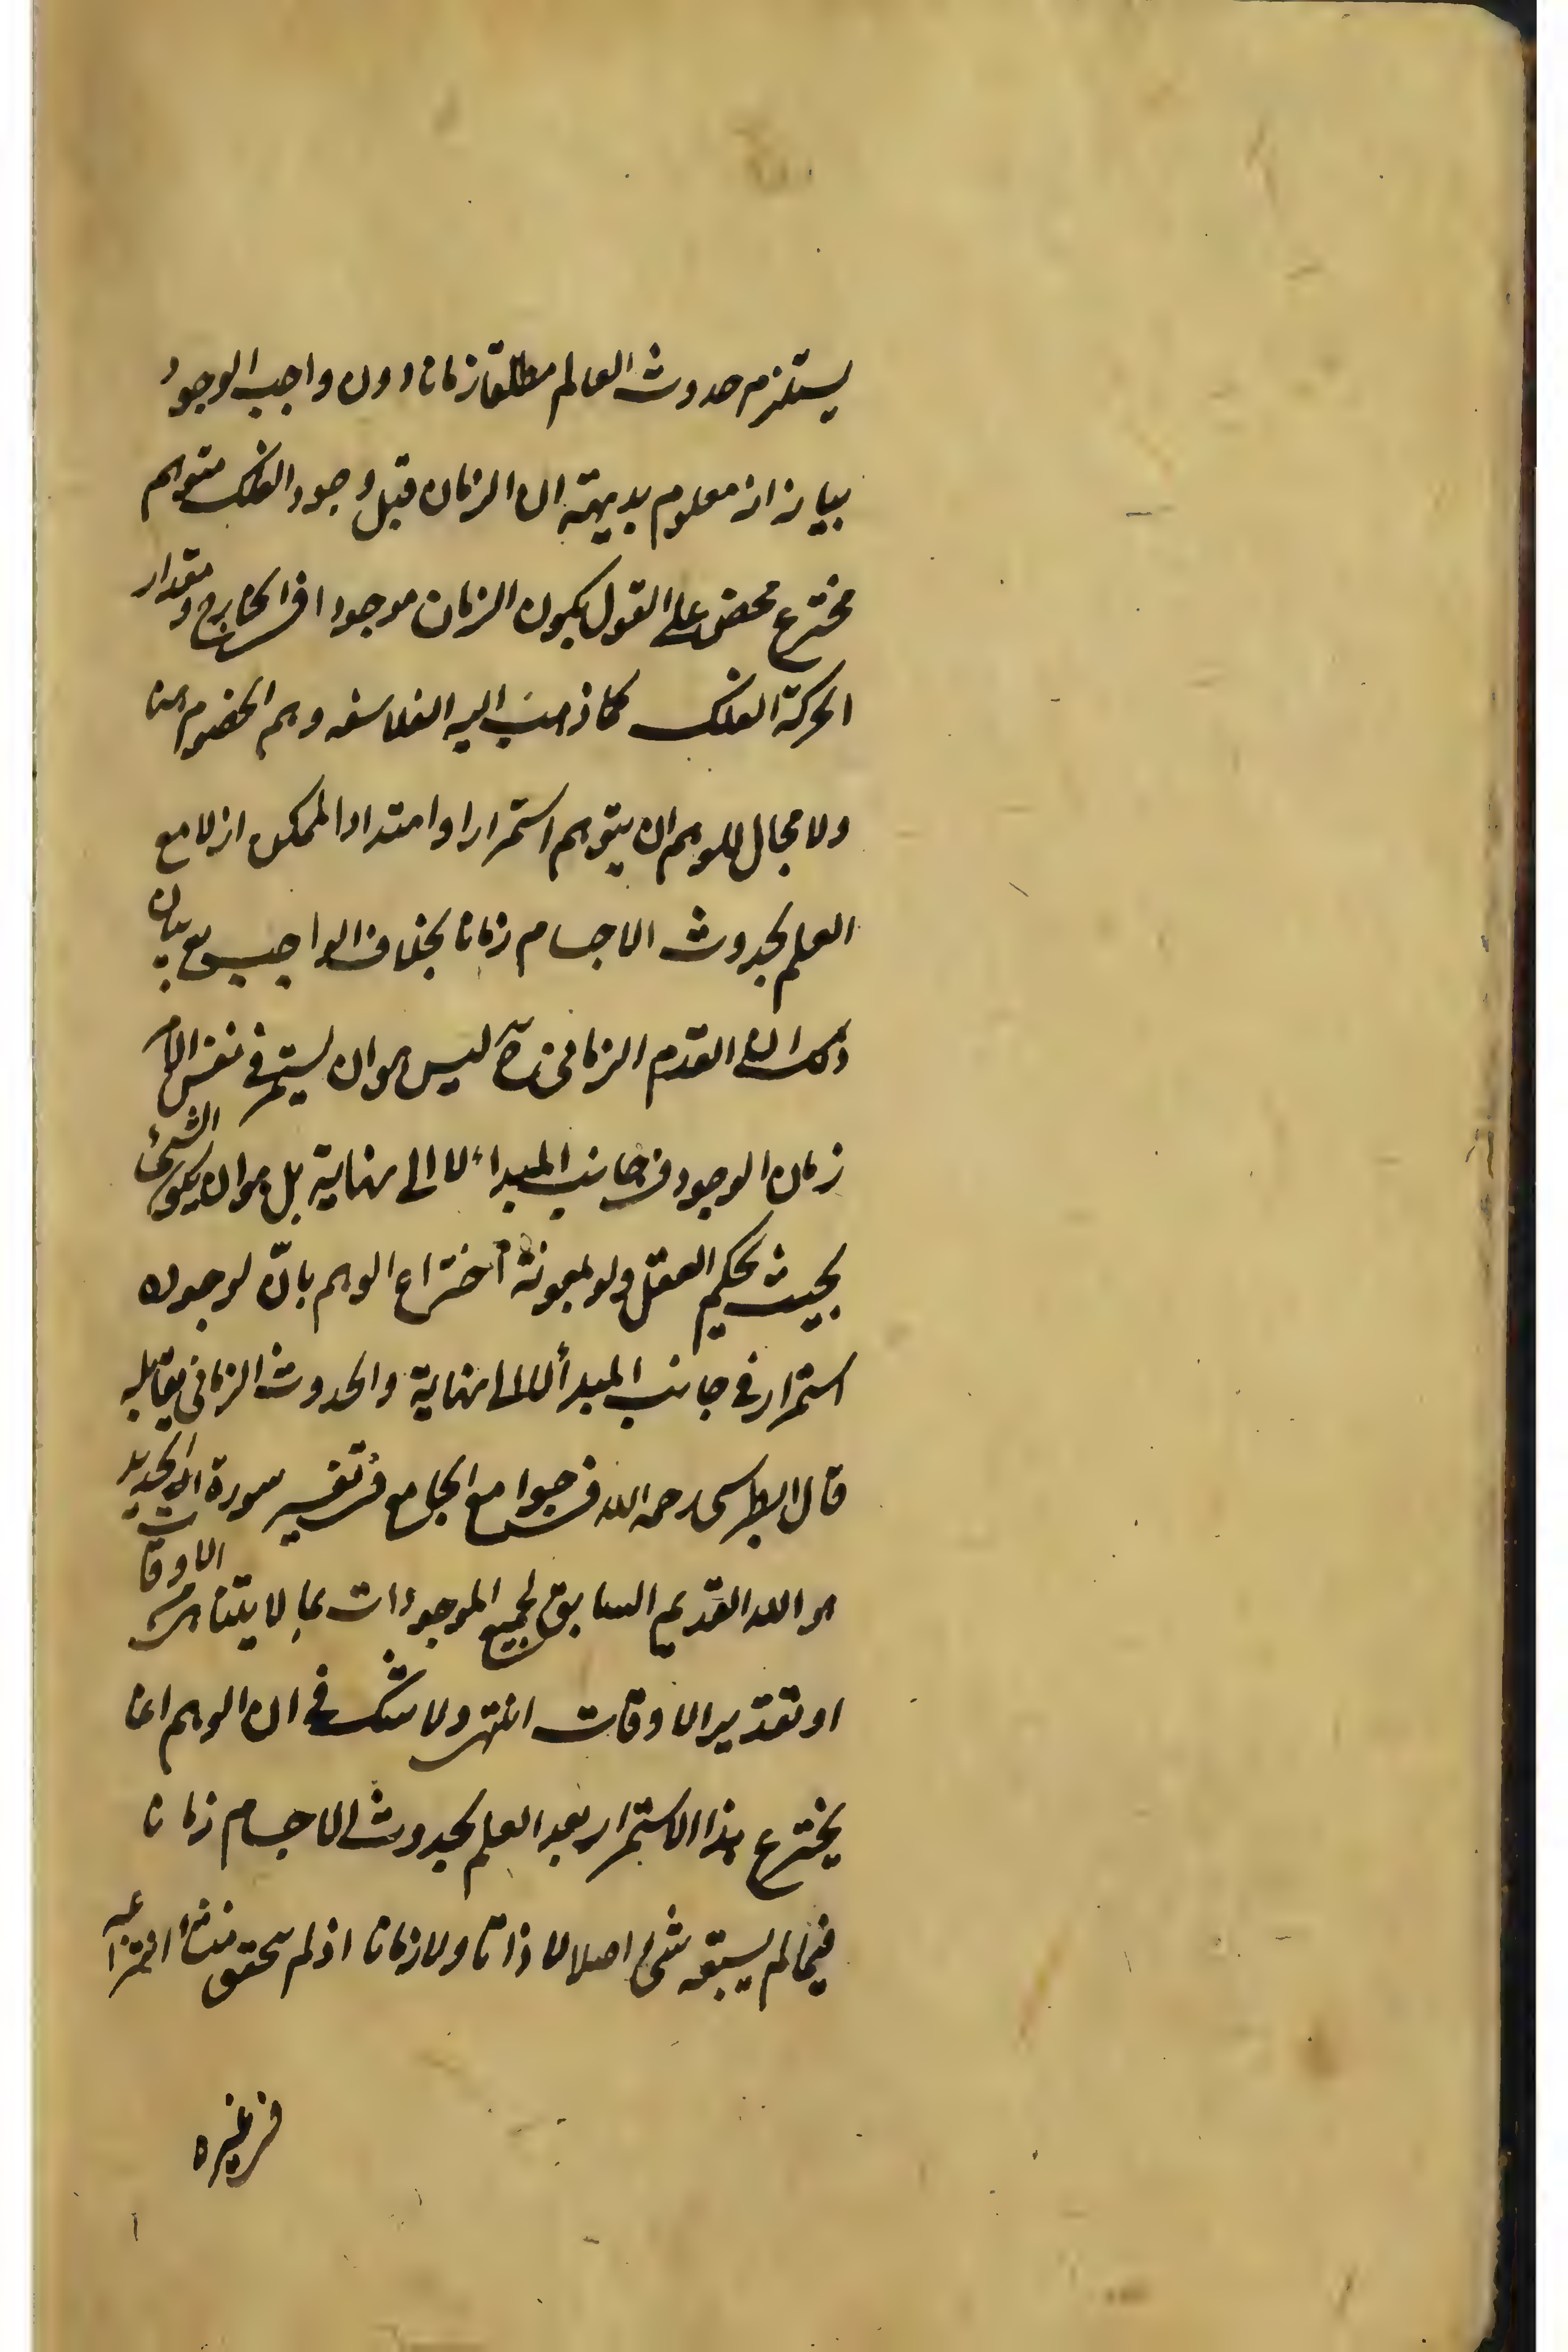 يستلزم حدوث العالم مطلقا زمانا دون واجب الوجود
بيانه انه معلوم بديهة ان الزمان قبل وجود الفلك متوهم
مخترع محض على القول بكون الزمان موجودا في الخارج و مقدار
الحركة الفلك كما ذهب اليه الفلاسفه وهم الخصوم هنا
ولا مجال للوهم ان يتوهم استمرارا وامتدادا لممكن ازلا مع
العلم بحدوث الاجسام زمانا بخلاف الواجب تع بيان
ذلك ان القدم الزماني ليس هو ان يستمر في نفس الامر
زمان الوجود في جانب المبداء لا الى نهاية بل هو ان يكون الشئ
بحيث يحكم العقل ولو بمعونة اختراع الوهم بانّ لوجوده
استمرار في جانب المبدأ لا الى نهاية والحدوث الزماني يقابله
قال الطبرسي رحمه الله في جوامع الجامع في تفسير سورة الحديد
هو الله القديم السابق لجميع الموجودات بما لا يتناهى من الاوقات
او تقدير الاوقات انتهى ولا شك في ان الوهم انما
يخترع هذا الاستمرار بعد العلم بحدوث الاجسام زمانا
فيما لم يسبقه شئ اصلا لا ذاتا ولا زمانا اذ لم يتحقق منشأ انتزاعه
في غيره